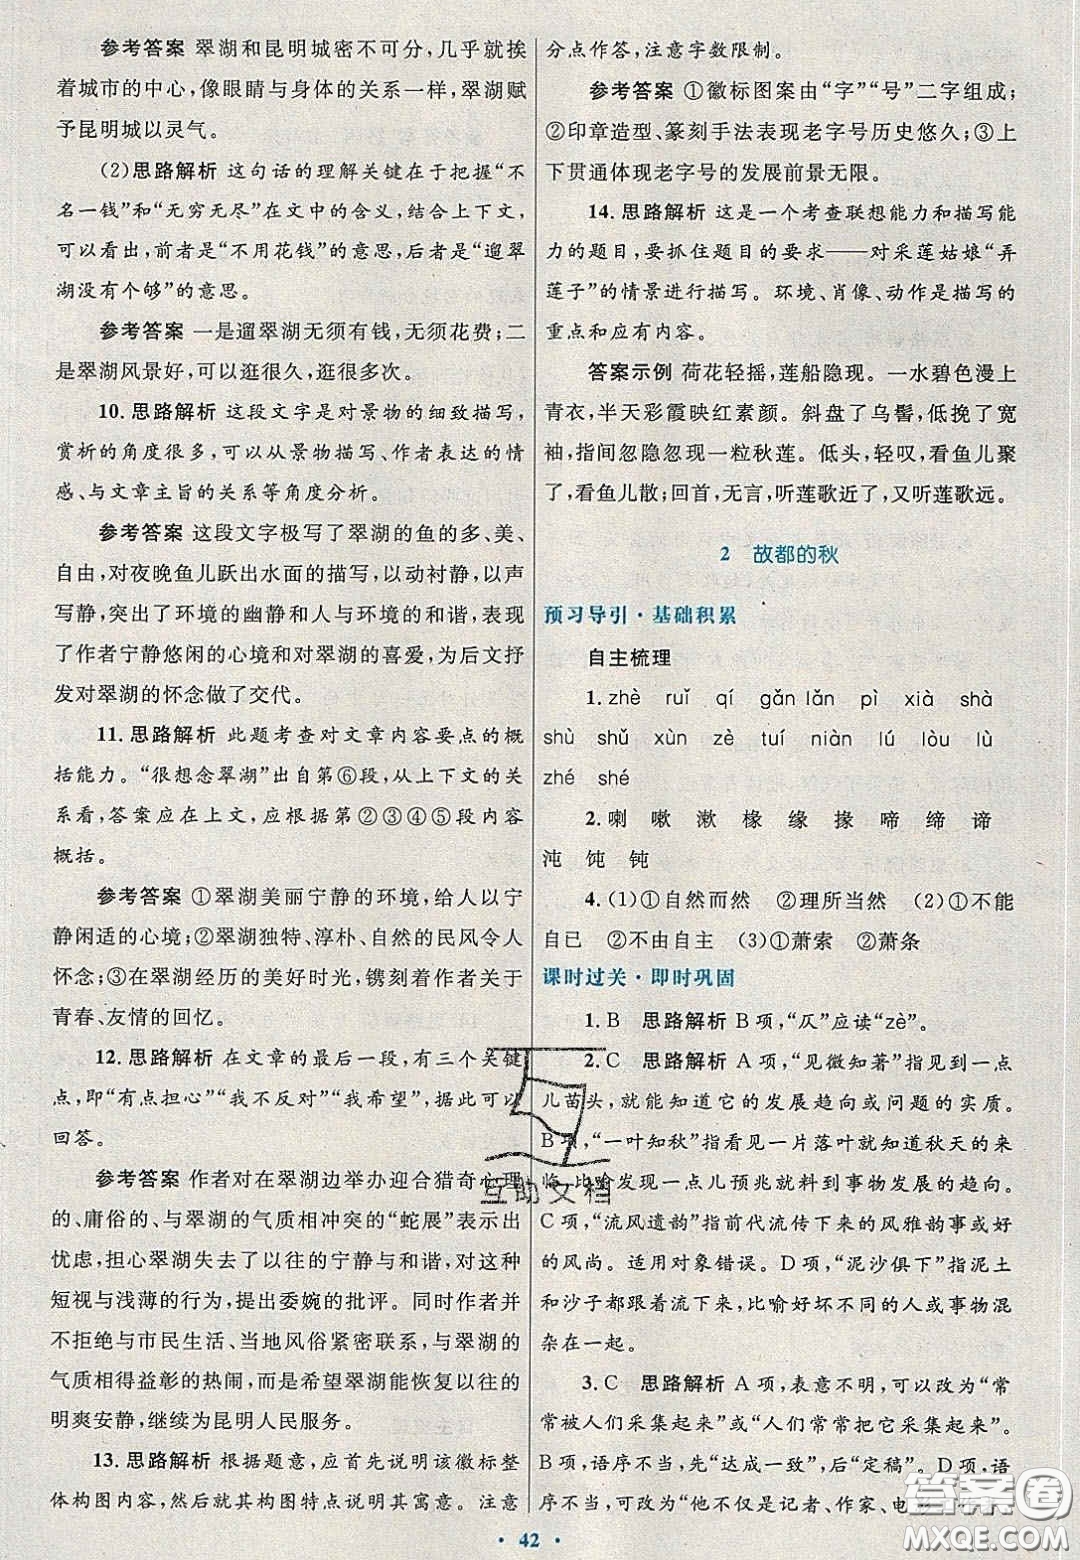 参考答案 翠湖和昆明城密不可分,几乎就挨
着城市的中心,像眼睛与身体的关系一样,翠湖赋
予昆明城以灵气。
(2)思路解析 这句话的理解关键在于把握“不
名一钱”和“无穷无尽”在文中的含义,结合上下文,
可以看出,前者是“不用花钱”的意思,后者是“遛翠
湖没有个够”的意思。
参考答案 一是遛翠湖无须有钱,无须花费;二
是翠湖风景好,可以逛很久,逛很多次。
10. 思路解析 这段文字是对景物的细致描写,
赏析的角度很多,可以从景物描写、作者表达的情
感、与文章主旨的关系等角度分析。
参考答案 这段文字极写了翠湖的鱼的多、美、
自由,对夜晚鱼儿跃出水面的描写,以动衬静,以声
写静,突出了环境的幽静和人与环境的和谐,表现
了作者宁静悠闲的心境和对翠湖的喜爱,为后文抒
发对翠湖的怀念做了交代。
11. 思路解析 此题考查对文章内容要点的概
括能力。“很想念翠湖”出自第⑥段,从上下文的关
系看,答案应在上文,应根据第②③④⑤段内容
概括。
参考答案 ①翠湖美丽宁静的环境,给人以宁
静闲适的心境;②翠湖独特、淳朴、自然的民风令人
怀念;③在翠湖经历的美好时光,镌刻着作者关于
青春、友情的回忆。
12. 思路解析 在文章的最后一段,有三个关键
点,即“有点担心”“我不反对”“我希望”,据此可以
回答。
参考答案 作者对在翠湖边举办迎合猎奇心理
的、庸俗的、与翠湖的气质相冲突的“蛇展”表示出
忧虑,担心翠湖失去了以往的宁静与和谐,对这种
短视与浅薄的行为,提出委婉的批评。同时作者并
不拒绝与市民生活、当地风俗紧密联系,与翠湖的
气质相得益彰的热闹,而是希望翠湖能恢复以往的
明爽安静,继续为昆明人民服务。
13. 思路解析 根据题意,应首先说明该徽标整
体构图内容,然后就其构图特点说明其寓意。注意
分点作答,注意字数限制。
参考答案 ①徽标图案由“字”“号”二字组成;
②印章造型、篆刻手法表现老字号历史悠久;③上
下贯通体现老字号的发展前景无限。
14. 思路解析 这是一个考查联想能力和描写能
力的题目,要抓住题目的要求——对采莲姑娘“弄
莲子”的情景进行描写。环境、肖像、动作是描写的
重点和应有内容。
答案示例 荷花轻摇,莲船隐现。一水碧色漫上
青衣,半天彩霞映红素颜。斜盘了乌髻,低挽了宽
袖,指间忽隐忽现一粒秋莲。低头,轻叹,看鱼儿聚
了,看鱼儿散;回首,无言,听莲歌近了,又听莲歌远。
2 故都的秋
预习导引·基础积累
自主梳理
1. zhè ruǐ qí gǎn lǎn pì xià shà
shù shǔ xùn zè tuí niàn lú lòu lù
zhé shé
2. 喇 嗽 漱 椽 缘 掾 啼 缔 谛
沌 饨 钝
4. (1)①自然而然 ②理所当然 (2)①不能
自已 ②不由自主 (3)①萧索 ②萧条
课时过关·即时巩固
1. B 思路解析 B项,“仄”应读“zè”。
2. C 思路解析 A项,“见微知著”指见到一点
儿苗头,就能知道它的发展趋向或问题的实质。
B项,“一叶知秋”指看见一片落叶就知道秋天的来
临,比喻发现一点儿预兆就料到事物发展的趋向。
C项,“流风遗韵”指前代流传下来的风雅韵事或好
的风尚。适用对象错误。D项,“泥沙俱下”指泥土
和沙子都跟着流下来,比喻好坏不同的人或事物混
杂在一起。
3. C 思路解析 A项,表意不明,可以改为“常
常被人们采集起来”或“人们常常把它采集起来”。
B项,语序不当,先“达成一致”,后“定稿”。D项,语
序不当,可改为“他不仅是记者、作家、电
· 42 ·
互助文档
答案圈
MXQE.COM